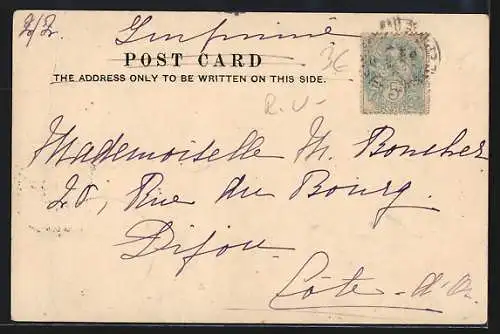 Imprimé
POST CARD
THE ADDRESS ONLY TO BE WRITTEN ON THIS SIDE.
3€
R.V.
Mademoiselle M. Boucher
20, Rue du Bourg.
Dijon
Côte-d'Or